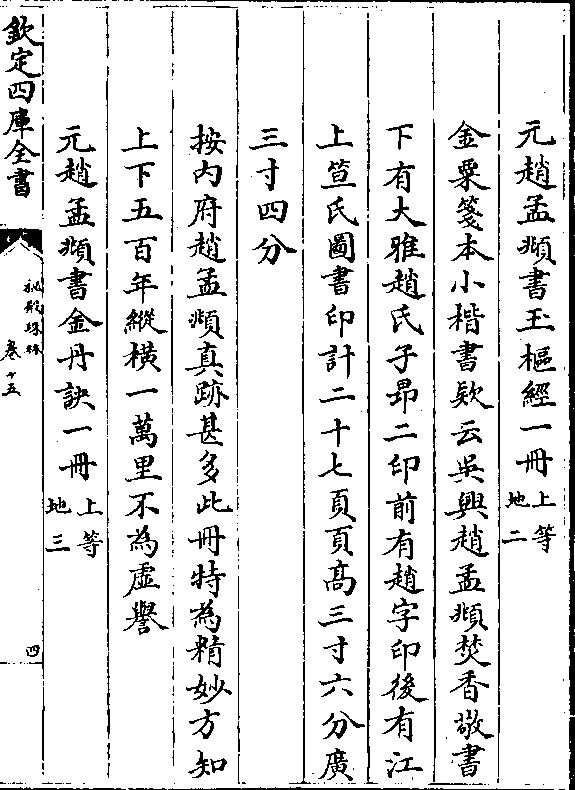 元趙孟頫書玉樞經一冊上等地二
金粟箋本小楷書欵云吳興趙孟頫焚香敬書
下有大雅趙氏子昂二印前有趙字印後有江
上笪氏圖書印計二十七頁頁高三寸六分廣
三寸四分
按内府趙孟頫真跡甚多此冊特為精妙方知
上下五百年縱橫一萬里不為虛譽
元趙孟頫書金丹訣一冊上等地三
欽定四庫全書
秘殿珠林
卷十五
四